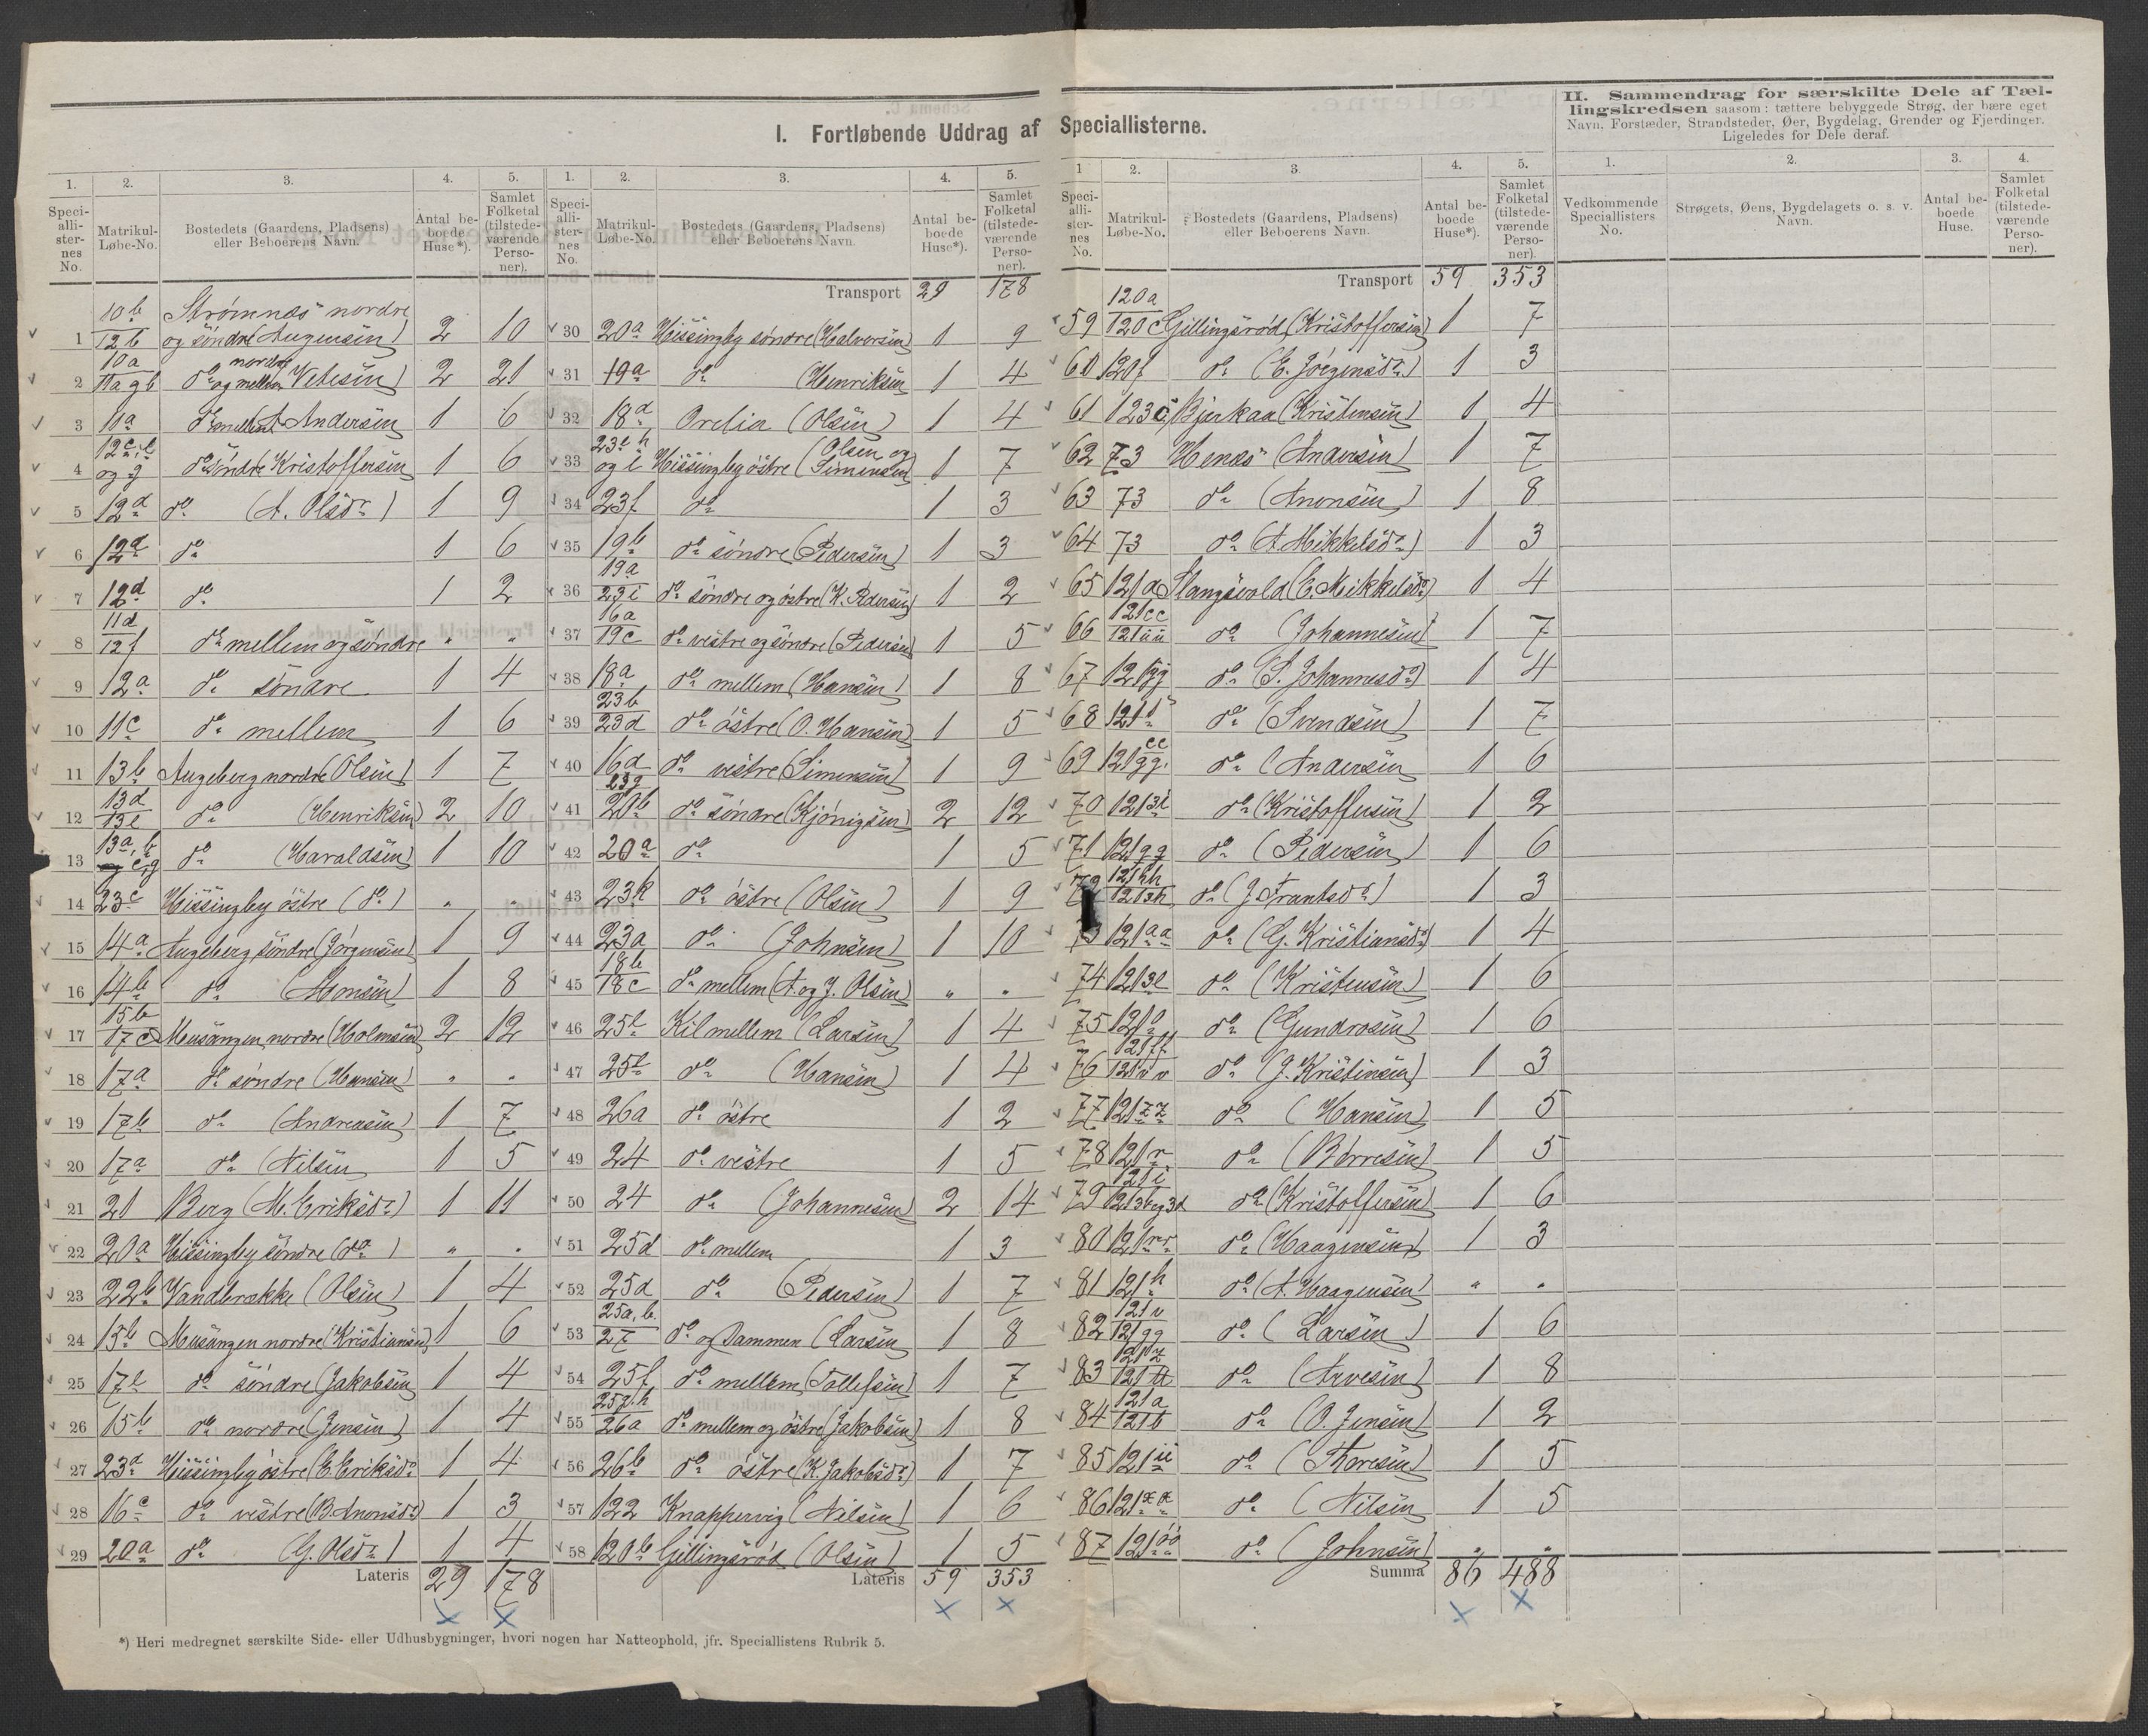 I. Fortløbende Uddrag af Speciallisterne.
II. Sammendrag for særskilte Dele af Tæl-
lingskredsen saasom: tættere bebyggede Strøg, der bære eget
Navn, Forstæder, Strandsteder, Øer, Bygdelag, Grender og Fjerdinger.
Ligeledes for Dele deraf.
1. 2. 3. 4. 5.
Speci-alli-ster-nes No. Matrikul-Løbe-No. Bostedets (Gaardens, Pladsens) eller Beboerens Navn. Antal be-boede Huse*). Samlet Folketal (tilstede-værende Perso-ner).
1 10b 12b Strømnæs nordre og søndre (Augensen) 2 10
2 10a 11a og b do nordre og mellem Vetesen) 2 21
3 11a do mellem Andersen 1 6
4 12c, e og g do søndre Kristoffersen 1 6
5 12d do (A. Olsdr) 1 9
6 12d do 1 6
7 12d do 1 2
8 11d 12f do mellem og søndre " "
9 12a do søndre 1 4
10 11c do mellem 1 6
11 13b Augeberg nordre (Olsen) 1 7
12 13d 13e do (Henriksen) 2 10
13 13a, b c, g do (Haraldsen) 1 10
14 23c Hissingby østre (do) " "
15 14a Augeberg søndre (Jørgensen) 1 9
16 14b do (Monsen) 1 8
17 15b 17c Musangen nordre (Holmsen) 2 12
18 17a do søndre (Hansen) " "
19 17b do (Andreasen) 1 7
20 17a do (Nilsen 1 5
21 21 Berg (M. Eriksdr) 1 11
22 20a Hissingby søndre (do) " "
23 22b Vandbrække (Olsen) 1 4
24 15b Musangen nordre (Kristiansen) 1 6
25 17e do søndre (Jakobsen 1 4
26 15b do nordre (Jensen) 1 4
27 23d Hissingby østre (E. Eriksdr 1 4
28 16c do vestre (B. Anonsdr) 1 3
29 20a do (G. Olsdr) 1 4
Lateris 29 178
1. 2. 3. 4. 5.
Speci-alli-ster-nes No. Matrikul-Løbe-No. Bostedets (Gaardens, Pladsens) eller Beboerens Navn. Antal be-boede Huse*). Samlet Folketal (tilstede-værende Perso-ner).
Transport 29 178
30 20a Hissingby søndre (Halvorsen) 1 9
31 19a do (Henriksen 1 4
32 18d Orelia (Olsen) 1 4
33 23e h og i Hissingby østre (Olsen og Simensen) 1 7
34 23f do 1 3
35 19b do søndre (Pedersen) 1 3
36 19a 23i do søndre og østre (K. Pedersen) 1 2
37 16a 19c do vestre og søndre (Pedersen) 1 5
38 18a do mellem (Hansen) 1 8
39 23b 23d do østre (O. Hansen) 1 5
40 16d do vestre (Simensen) 1 9
41 23g 20b do søndre (Kjønigsen) 2 12
42 20a do 1 5
43 23k do østre (Olsen) 1 9
44 23a do (Johnsen) 1 10
45 18b 18c do mellem (A. og J. Olsen) " "
46 25e Kil mellem (Larsen) 1 4
47 25e do (Hansen) 1 4
48 26a do østre 1 2
49 24 do vestre 1 5
50 24 do (Johannesen) 2 14
51 25d do mellem 1 3
52 25d do (Pedersen) 1 7
53 25a, b 27 do og Dammen (Larsen 1 8
54 25f do mellem (Tollefsen) 1 7
55 25g, h 26a do mellem og østre (Jakobsen) 1 8
56 26b do østre (K. Jakobsdr) 1 7
57 122 Knappervig (Nilsen) 1 6
58 120b Gillingsrød (Olsen) 1 5
Lateris 59 353
1 2. 3. 4. 5.
Speci-alli-ster-nes No. Matrikul-Løbe-No. Bostedets (Gaardens, Pladsens) eller Beboerens Navn. Antal be-boede Huse*). Samlet Folketal (tilstede-værende Perso-ner).
Transport 59 353
59 120a 120c Gillingsrød (Kristoffersen) 1 7
60 120f do (E. Jørgensdr) 1 3
61 123c Bjerkaa (Kristensen) 1 4
62 73 Henæs (Andersen) 1 7
63 73 do (Anonsen) 1 8
64 73 do (A. Mikkelsdr) 1 3
65 121d Slangsvold (E. Mikkelsdr) 1 4
66 121cc 121üü do (Johannesen) 1 7
67 121gg do (S. Johannesdr) 1 4
68 121 do (Svendsen) 1 7
69 121 gg. do (Andersen 1 6
70 121 do (Kristoffersen) 1 2
71 121gg do (Pedersen) 1 6
121hh do (J. Frantsdr) 1 3
73 121aa do (G. Kristiansdr) 1 4
74 121 do (Kristensen) 1 6
75 121 do (Gundrosen) 1 6
76 121ff 121vv do (J. Kristinsen) 1 3
77 121zz do (Hansen) 1 5
78 121r do (Børresen) 1 5
79 121i do (Kristoffersen) 1 6
80 121rr do (Haagensen) 1 3
81 121h do (A. Haagensen) " "
82 121v 121gg do (Larsen) 1 6
83 121z 121tt do (Arvesen) 1 8
84 121a 121b do (O. Jensen) 1 2
85 121ii do (Thoresen) 1 5
86 121xx do (Nilsen 1 5
87 121öö do (Johnsen) " "
Summa 86 488
1. 2. 3. 4.
Vedkommende Speciallisters No. Strøgets, Øens, Bygdelagets o. s. v. Navn. Antal be-boede Huse. Samlet Folketal (tilstede-værende Perso-ner).
*) Heri medregnet særskilte Side- eller Udhusbygninger, hvori nogen har Natteophold, jfr. Speciallistens Rubrik 5.